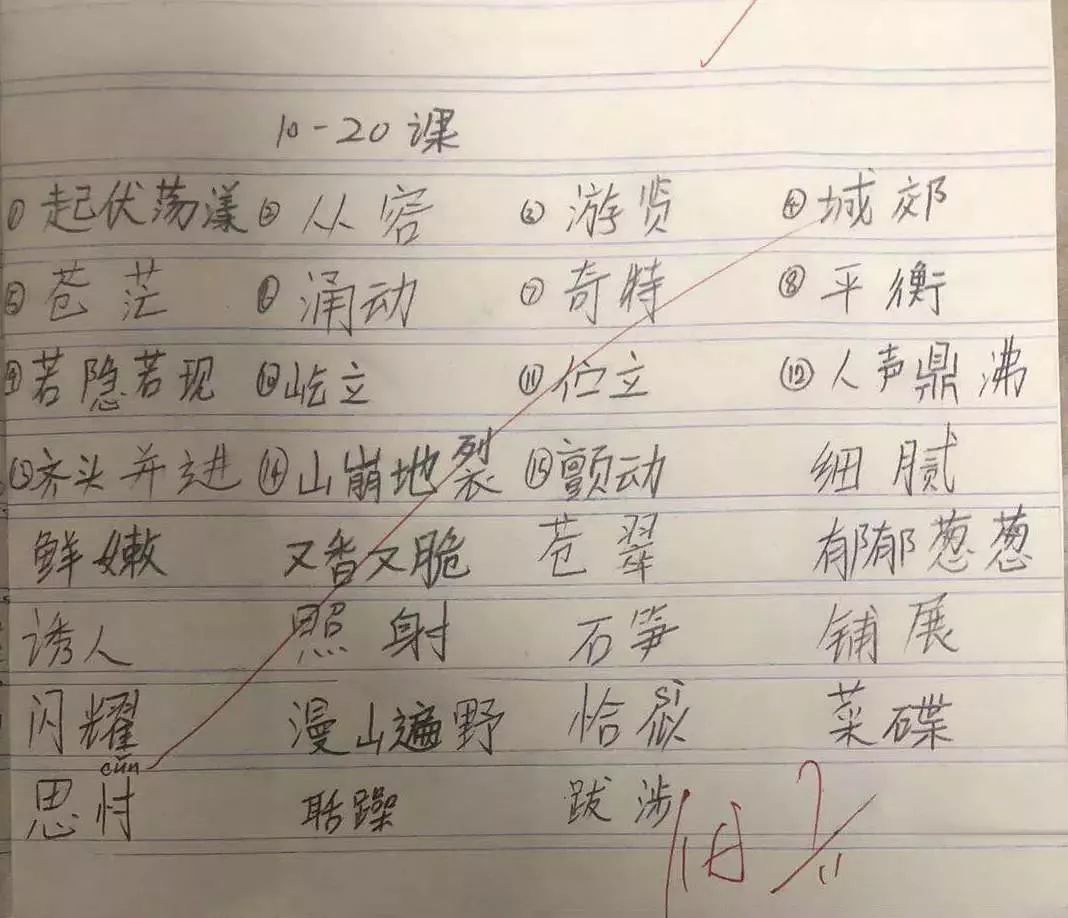 10-20课
①起伏荡漾 ②从容 ③游贤 ④城郊
⑤苍茫 ⑥涌动 ⑦奇特 ⑧平衡
⑨若隐若现 ⑩屹立 ⑪伫立 ⑫人声鼎沸
⑬齐头并进 ⑭山崩地裂 ⑮颤动 细腻
鲜嫩 又香又脆 苍翠 郁郁葱葱
诱人 照射 石笋 铺展
闪耀 漫山遍野 恰似 sì 菜碟
思忖 cǔn 聒躁 跋涉